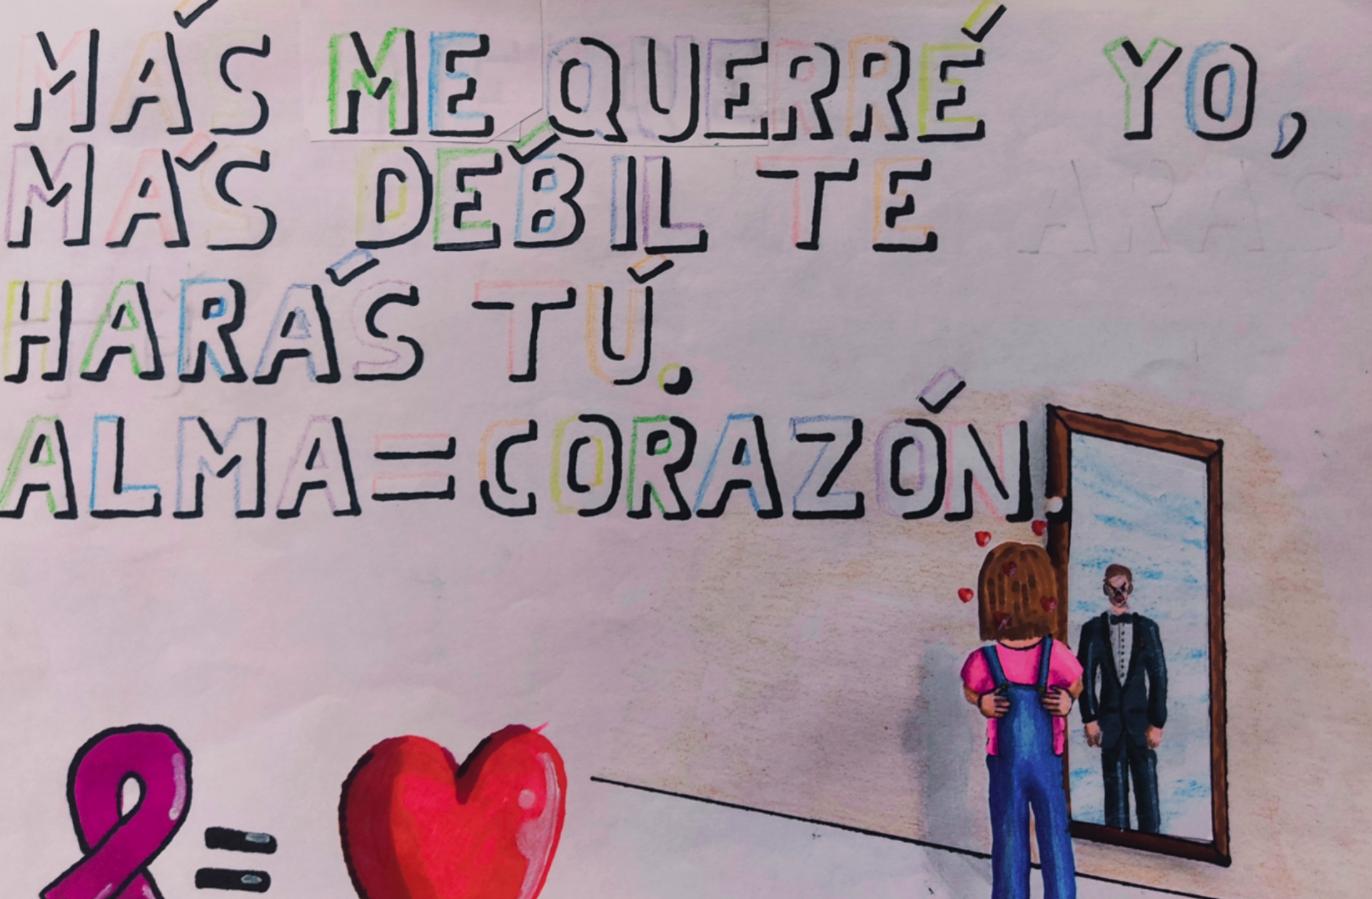 MÁS ME QUERRÉ YO,
MÁS DÉBIL TE
HARÁS TÚ.
ALMA=CORAZÓN.